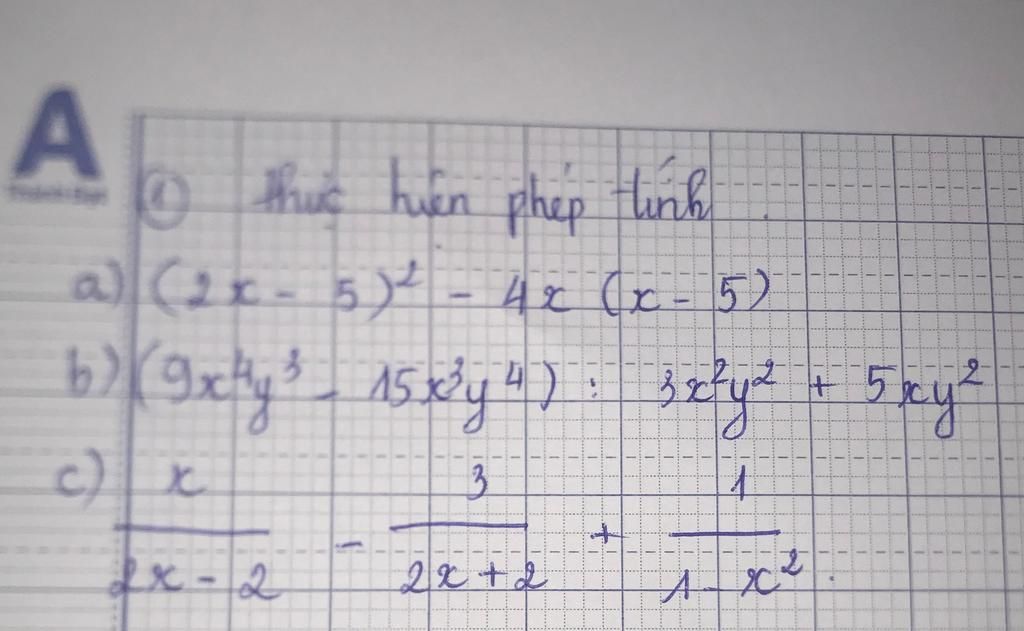 A
① thực hiện phép tính.
a) (2x - 5)² - 4x (x - 5)
b) (9x⁴y³ - 15x³y⁴) : 3x²y² + 5xy²
c) x/(2x - 2) - 3/(2x + 2) + 1/(1 - x²).